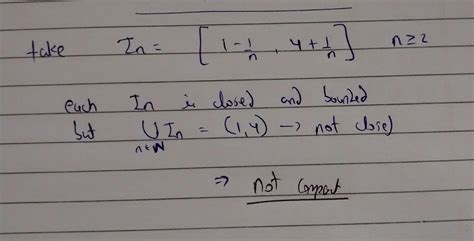 take In = [ 1 - 1/n , 4 + 1/n ] n ≥ 2
each In is closed and bounded
but ⋃ In = (1, 4) → not closed
n∈N
⇒ not compact